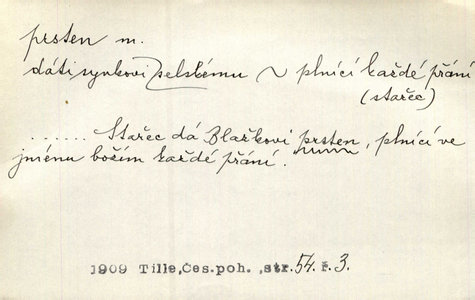 prsten m.
dáti synkovi selskému ~ plnící každé přání
(stařec)
...... Stařec dá Blažkovi prsten, plnící ve
jménu božím každé přání.
1909 Tille,Čes.poh. ,str.54.ř.3.